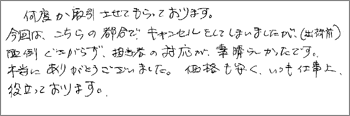 何度か取引させてもらっております。
今回は、こちらの都合でキャンセルをしてしまいましたが、(出荷前)
面倒くさがらず、担当者の対応が、素晴らしかったです。
本当にありがとうございました。価格も安く、いつも仕事上、
役立っております。